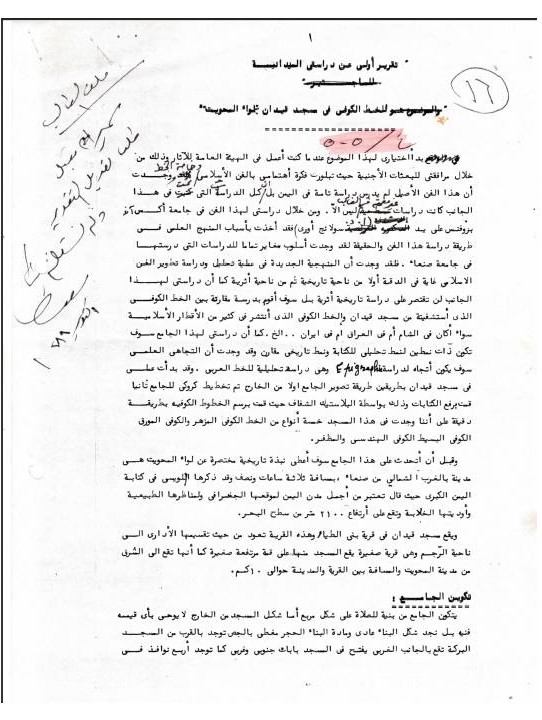 ١
" تقرير أولى عن دراستى الميدانية
للماجستير
والموضوع هو للخط الكوفى فى مسجد قيدان بلواء المحويت "
١٦
بدء اختيارى لهذا الموضوع عندما كنت أعمل فى الهيئة العامة للآثار وذلك من
خلال مرافقتى للبعثات الأجنبية حيث تبلورت فكرة أهتمامى بالفن الأسلامى وخاصة الخط وجدت
أن هذا الفن الأصل لم يدرس دراسة تامة فى اليمن بل أن كل الدراسة التى تمت فى هذا
الجانب كانت دراسات ليس الآ . ومن خلال دراستى لهذا الفن فى جامعة أكس
بروفنس على يد سولانج أورى / فقد أخذت بأسباب المنهج العلمى فى
طريقة دراسة هذا الفن والحقيقة لقد وجدت أسلوب مغاير تماما للدراسات التى درستها
فى جامعة صنعاء . فلقد وجدت أن المنهجية الجديدة فى عطية تحليل ودراسة تطوير الفن
الاسلامى غاية فى الدقة أولا من ناحية تاريخية ثم من ناحية أثرية كما أن دراستى لهذا
الجانب لن تقتصر على دراسة تاريخية أثرية بل سوف أقوم بدرسة مقارنة بين الخط الكوفى
الذى أستشفيته من مسجد قيدان والخط الكوفى الذى أنتشر فى كثير من الأقطار الأسلامية
سواء أكان فى الشام أم فى العراق أم فى ايران ٠٠ الخ . كما أن دراستى لهذا الجامع سوف
تكون ذات نمطين لنمط تحليلى للكتابة ونمط تاريخى مقارن وقد وجدت أن أتجاهى العلمى
سوف يكون أتجاه لدراسة Epigraphie وهى دراسة تحليلية للخط العربى . وقد بدأت على
فى مسجد قيدان بطريقتين طريقة تصوير الجامع اولا من الخارج ثم تخطيط كروكى للجامع ثانيا
قمت برفع الكتابات وذلك بواسطة البلاستيك الشفاف حيث قمت برسم الخطوط الكوفيه بطريقة
دقيقة على أننا وجدت فى هذا المسجد خمسة أنواع من الخط الكوفى المزهر والكوفى المورق
الكوفى البسيط الكوفى الهندسى والمظفر .
وقبل أن أتحدث على هذا الجامع سوف أعطى نبذة تاريخية مختصرة عن لواء المحويت هى
مدينة بالغرب الشمالي من صنعاء ، بمسافة ثلاثة ساعات ونصف وقد ذكرها الويسى فى كتابة
اليمن الكبرى حيث قال تعتبر من أجمل مدن اليمن لموقعها الجغرافى ولمناظرها الطبيعية
وأوديتها الخلابة وتقع على أرتفاع ٢١٠٠ متر من سطح البحر.
ويقع مسجد قيدان فى قرية بنى الطيا / وهذه القرية تعود من حيث تقسيمها الأدارى الى
ناحية الرجم وهى قرية صغيرة يقع المسجد منها على قمة مرتفعة صغيرة كما أنها تقع الى الشرق
من مدينة المحويت والمسافة بين القرية والمدينة حوالى ١٠كم.
تكوين الجامع :
يتكون الجامع من بنية للصلاة على شكل مربع أما شكل المسجد من الخارج لا يوحى بأى قيمه
فنيه بل نجد شكل البناء عادى ومادة البناء الحجر مغطى بالجص توجد بالقرب من المسجد
البركة تقع بالجانب الغربى يفتح فى المسجد بابان جنوبى وغربى كما توجد أربع نوافذ فى